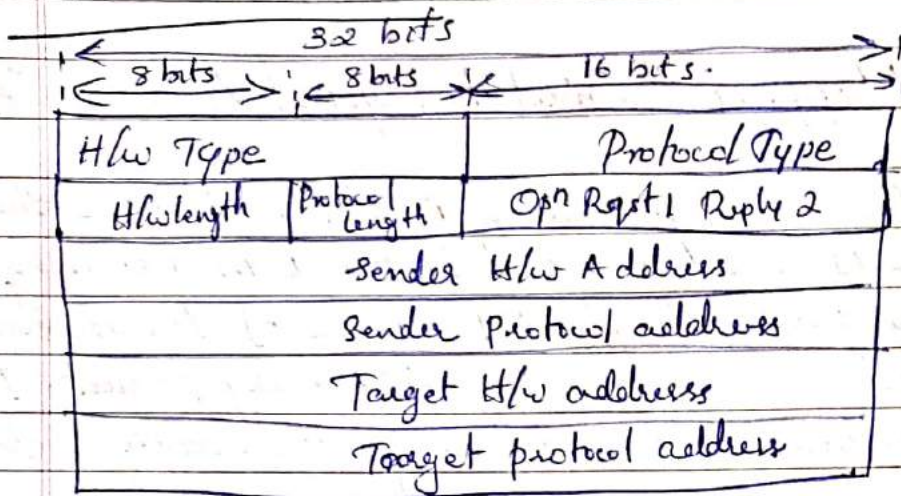 32 bits
8 bits 8 bits 16 bits.
H/w Type Protocol Type
H/w length Protocol length Opn Rqst 1 Reply 2
Sender H/w Address
Sender Protocol address
Target H/w address
Target protocol address